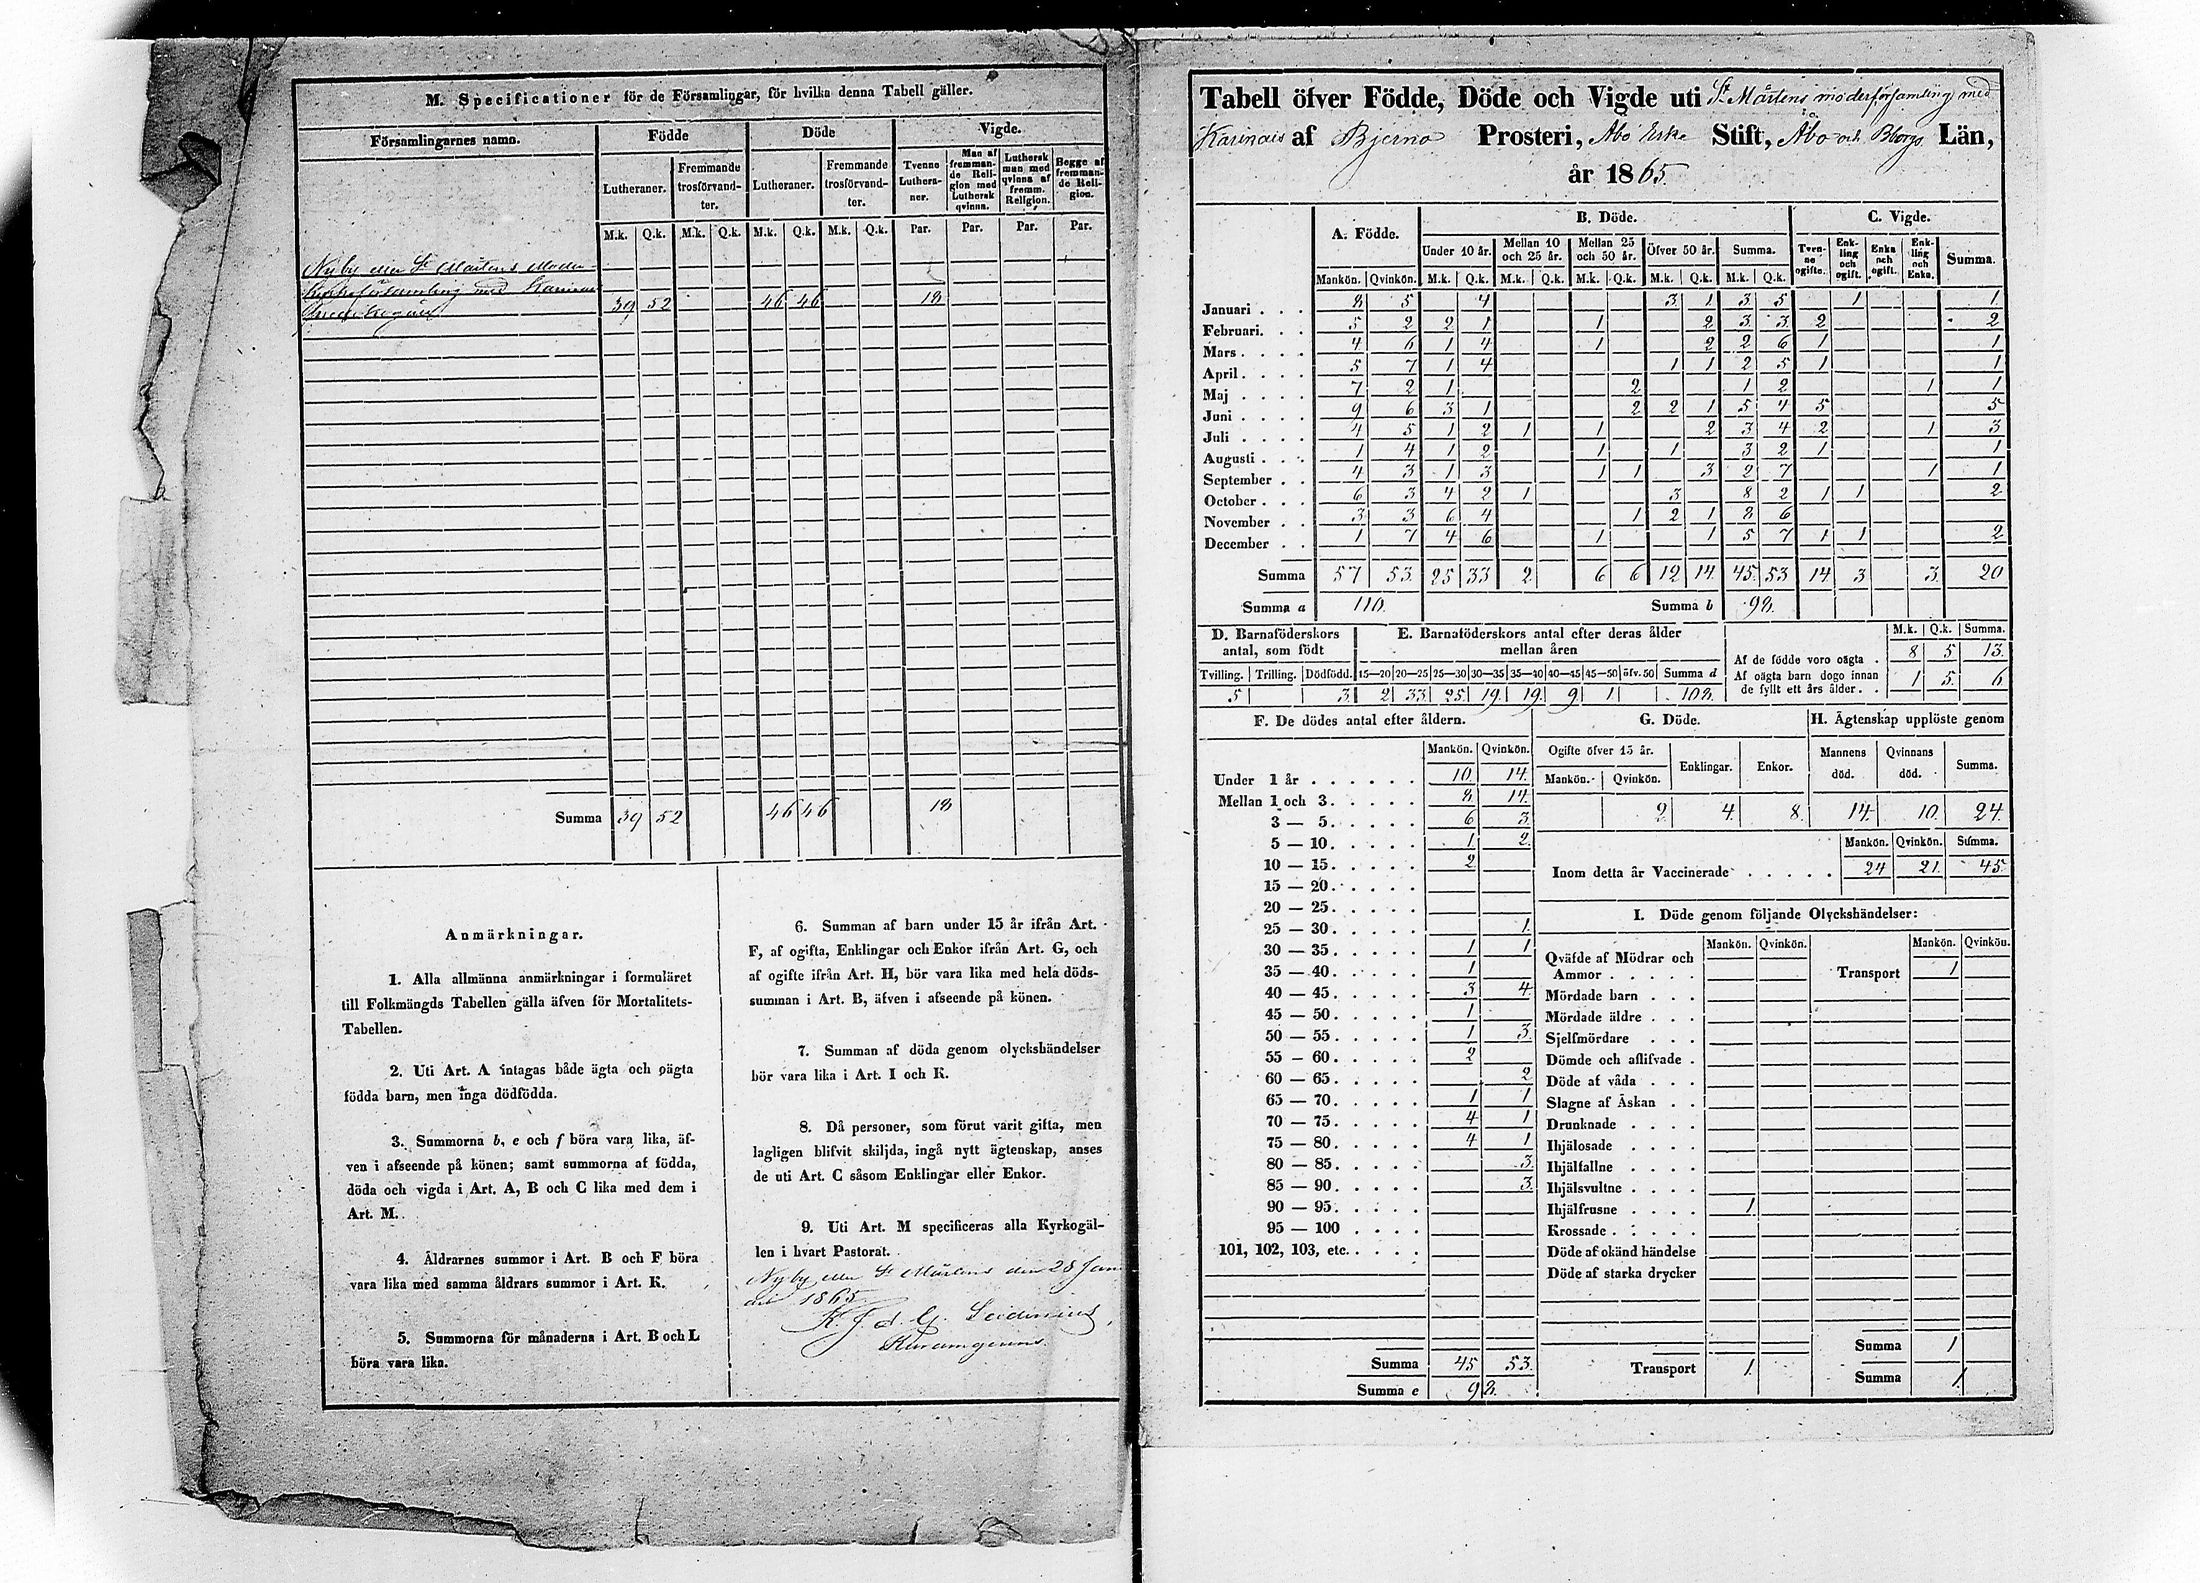 M. Specificationer för de Församlingar, för hvilka denna Tabell gäller.
Församlingarnes namn. Födde Döde Vigde.
Lutheraner. Fremmande trosförvandter. Lutheraner. Fremmande trosförvandter. Tvenne Lutheraner. Man af fremmande Religion med Luthersk qvinna. Luthersk man med qvinna af fremm. Religion. Begge af fremmande Religion.
M.k. Q.k. M.k. Q.k. M.k. Q.k. M.k. Q.k. Par. Par. Par. Par.
Nyby eller St Mårtens Moder
Kyrkoförsamling med Karinais
39 52 46 46 18
Summa 39 52 46 46 18
Anmärkningar.
1. Alla allmänna anmärkningar i formuläret
till Folkmängds Tabellen gälla äfven för Mortalitets-
Tabellen.
2. Uti Art. A intagas både ägta och oägta
födda barn, men inga dödfödda.
3. Summorna b, e och f böra vara lika, äf-
ven i afseende på könen; samt summorna af födda,
döda och vigda i Art. A, B och C lika med dem i
Art. M.
4. Åldrarnes summor i Art. B och F böra
vara lika med samma åldrars summor i Art. K.
5. Summorna för månaderna i Art. B och L
böra vara lika.
6. Summan af barn under 15 år ifrån Art.
F, af ogifta, Enklingar och Enkor ifrån Art. G, och
af ogifte ifrån Art. H, bör vara lika med hela döds-
summan i Art. B, äfven i afseende på könen.
7. Summan af döda genom olyckshändelser
bör vara lika i Art. I och K.
8. Då personer, som förut varit gifta, men
lagligen blifvit skiljda, ingå nytt ägtenskap, anses
de uti Art. C såsom Enklingar eller Enkor.
9. Uti Art. M specificeras alla Kyrkogäl-
len i hvart Pastorat.
Nyby eller St Mårtens den 28 Janu
ari 1865.
Tabell öfver Födde, Döde och Vigde uti St Mårtens moderförsamling med
Karinais af Bjerno Prosteri, Åbo Erke Stift, Åbo och Bborgs Län,
år 1865.
A. Födde. B. Döde. C. Vigde.
Under 10 år. Mellan 10 och 25 år. Mellan 25 och 50 år. Öfver 50 år. Summa. Tvenne ogifte. Enkling och ogift. Enka och ogift. Enkling och Enka. Summa.
Mankön. Qvinkön. M.k. Q.k. M.k. Q.k. M.k. Q.k. M.k. Q.k. M.k. Q.k.
Januari 8 5 4 3 1 3 5 1 1
Februari. 5 2 2 1 1 2 3 3 2 2
Mars 4 6 1 4 1 2 2 6 1 1
April 5 7 1 4 1 1 2 5 1 1
Maj 7 2 1 2 1 2 1 1
Juni 9 6 3 1 2 2 1 5 4 5 5
Juli 4 5 1 2 1 1 2 3 4 2 1 3
Augusti 1 4 1 2 1 1 3 2 1 1
September 4 3 1 3 1 1 3 2 7 1 1
October 6 3 4 2 1 3 8 2 1 1 2
November 3 3 6 4 1 2 1 8 6
December 1 7 4 6 1 1 5 7 1 1 2
Summa 57 53 25 33 2 6 6 12 14 45 53 14 3 3 20
Summa a 110. Summa b 98.
D. Barnaföderskors antal, som födt E. Barnaföderskors antal efter deras ålder mellan åren M.k. Q.k. Summa.
Af de födde voro oägta 8 5 13.
Tvilling. Trilling. Dödfödd. 15—20 20—25 25—30 30—35 35—40 40—45 45—50 öfv. 50 Summa d
Af oägta barn dogo innan de fyllt ett års ålder 1 5 6
5 3 2 33 25 19 19 9 1 108.
F. De dödes antal efter åldern.
Mankön. Qvinkön.
Under 1 år 10. 14.
Mellan 1 och 3. 8 14.
3 — 5. 6 3.
5 — 10. 1 2.
10 — 15. 2
15 — 20.
20 — 25.
25 — 30. 1.
30 — 35. 1 1
35 — 40. 1
40 — 45. 3 4
45 — 50. 1
50 — 55. 1 3.
55 — 60. 2
60 — 65. 2
65 — 70. 1 1
70 — 75. 4 1
75 — 80. 4 1
80 — 85. 3.
85 — 90. 3.
90 — 95.
95 — 100
101, 102, 103, etc.
Summa 45 53.
Summa e 98.
G. Döde. H. Ägtenskap upplöste genom
Ogifte öfver 15 år. Enklingar. Enkor. Mannens död. Qvinnans död. Summa.
Mankön. Qvinkön.
2 4. 8. 14. 10. 24.
Mankön. Qvinkön. Summa.
Inom detta år Vaccinerade 24 21. 45.
I. Döde genom följande Olyckshändelser:
Mankön. Qvinkön. Mankön. Qvinkön.
Qväfde af Mödrar och
Ammor Transport 1
Mördade barn
Mördade äldre
Sjelfmördare
Dömde och aflifvade
Döde af våda
Slagne af Åskan
Drunknade
Ihjälosade
Ihjälfallne
Ihjälsvultne
Ihjälfrusne 1
Krossade
Döde af okänd händelse
Döde af starka drycker
Summa 1
Transport 1. Summa 1.